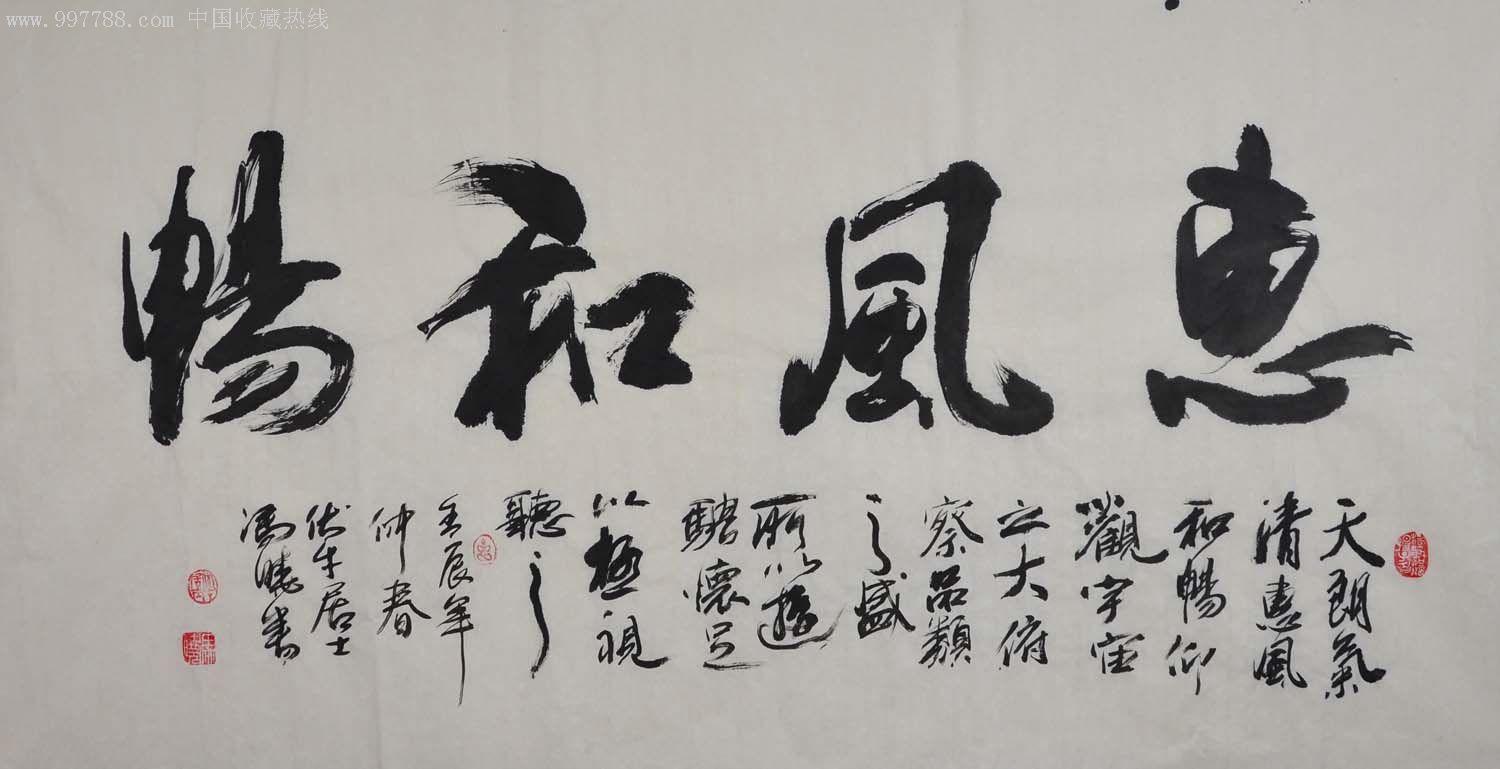 www.997788.com 中国收藏热线
惠風和暢
天朗氣
清惠風
和暢仰
觀宇宙
之大俯
察品類
之盛
所以遊
騁懷足
以極視
聽之
壬辰年
仲春
伏牛居士
馮曉書